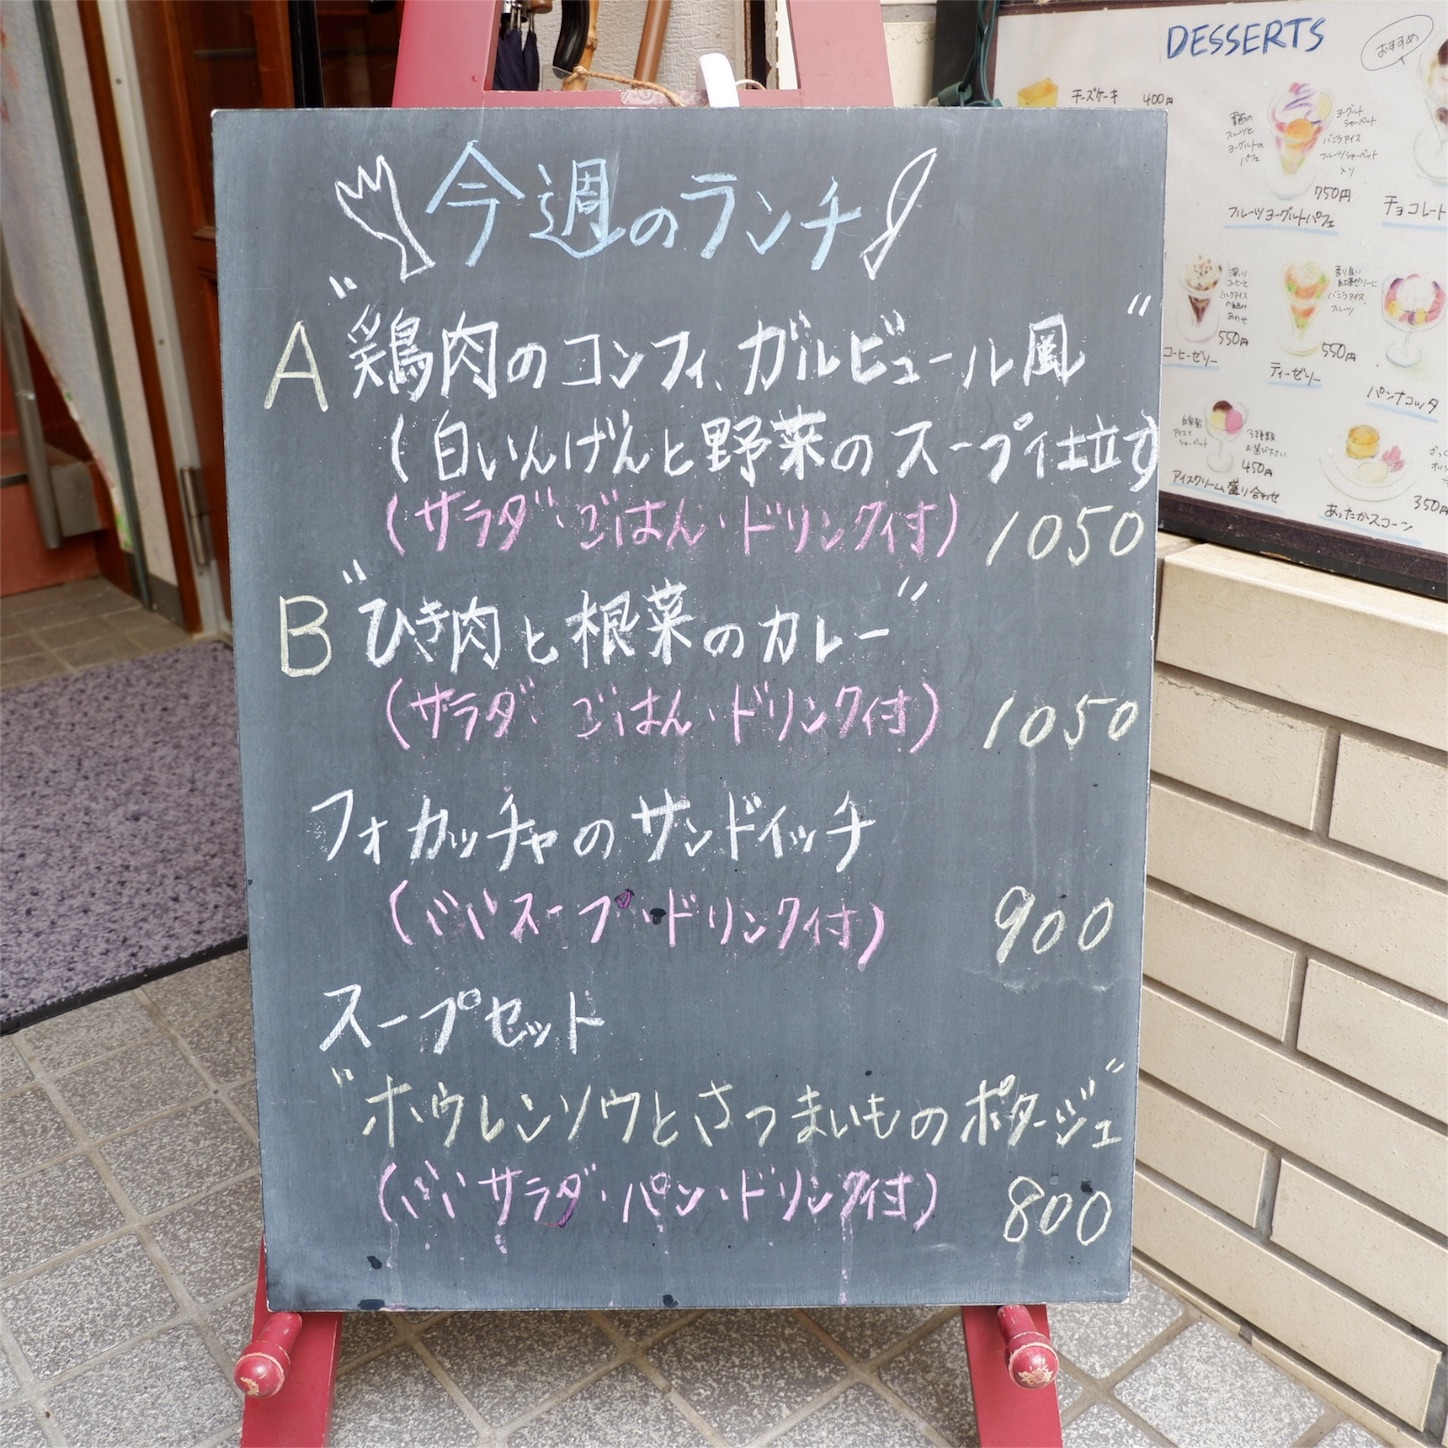 今週のランチ
A "鶏肉のコンフィ、ガルビュール風"
(白いんげんと野菜のスープ仕立て)
(サラダ・ごはん・ドリンク付) 1050
B "ひき肉と根菜のカレー"
(サラダ ごはん・ドリンク付) 1050
フォカッチャのサンドイッチ
(ミニスープ・ドリンク付) 900
スープセット
"ホウレンソウとさつまいものポタージュ"
(ミニサラダ・パン・ドリンク付) 800
DESSERTS
おすすめ
チーズケーキ 400円
ヨーグルト
シャーベット
バニラアイス
フルーツシャーベット
入り
750円
フルーツヨーグルトパフェ
チョコレート
深いり
コーヒーと
ミルクアイス
の組み
あわせ
550円
コーヒーゼリー
香り良い
紅茶ゼリーに
バニラアイス、
フルーツ
550円
ティーゼリー
パンナコッタ
自家製
アイスと
シャーベット
3種類
お選び下さい
450円
アイスクリーム盛り合わせ
350円
あったかスコーン